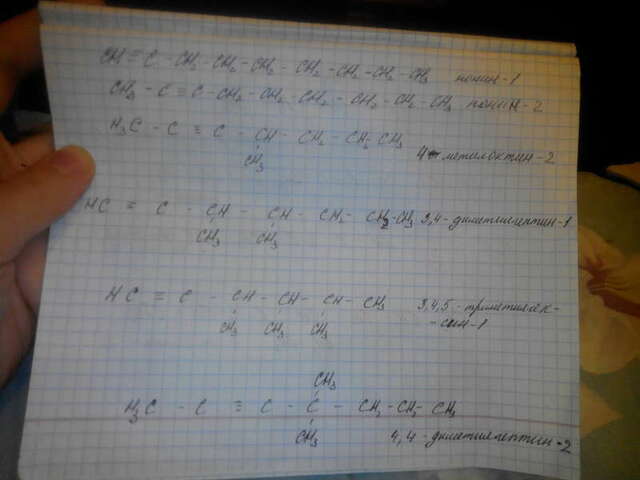 CH ≡ C - CH2 - CH2 - CH2 - CH2 - CH2 - CH2 - CH3 нонин-1
CH3 - C ≡ C - CH2 - CH2 - CH2 - CH2 - CH2 - CH3 нонин-2
H3C - C ≡ C - CH - CH2 - CH2 CH3
CH3
4-метилоктин-2
HC ≡ C - CH - CH - CH2 - CH2-CH3 3,4-диметилгептин-1
CH3 CH3
HC ≡ C - CH - CH - CH - CH3 3,4,5-триметилгек-
CH3 CH3 CH3 -син-1
CH3
H3C - C ≡ C - C - CH2 - CH2 - CH3
CH3
4,4-диметилгептин-2